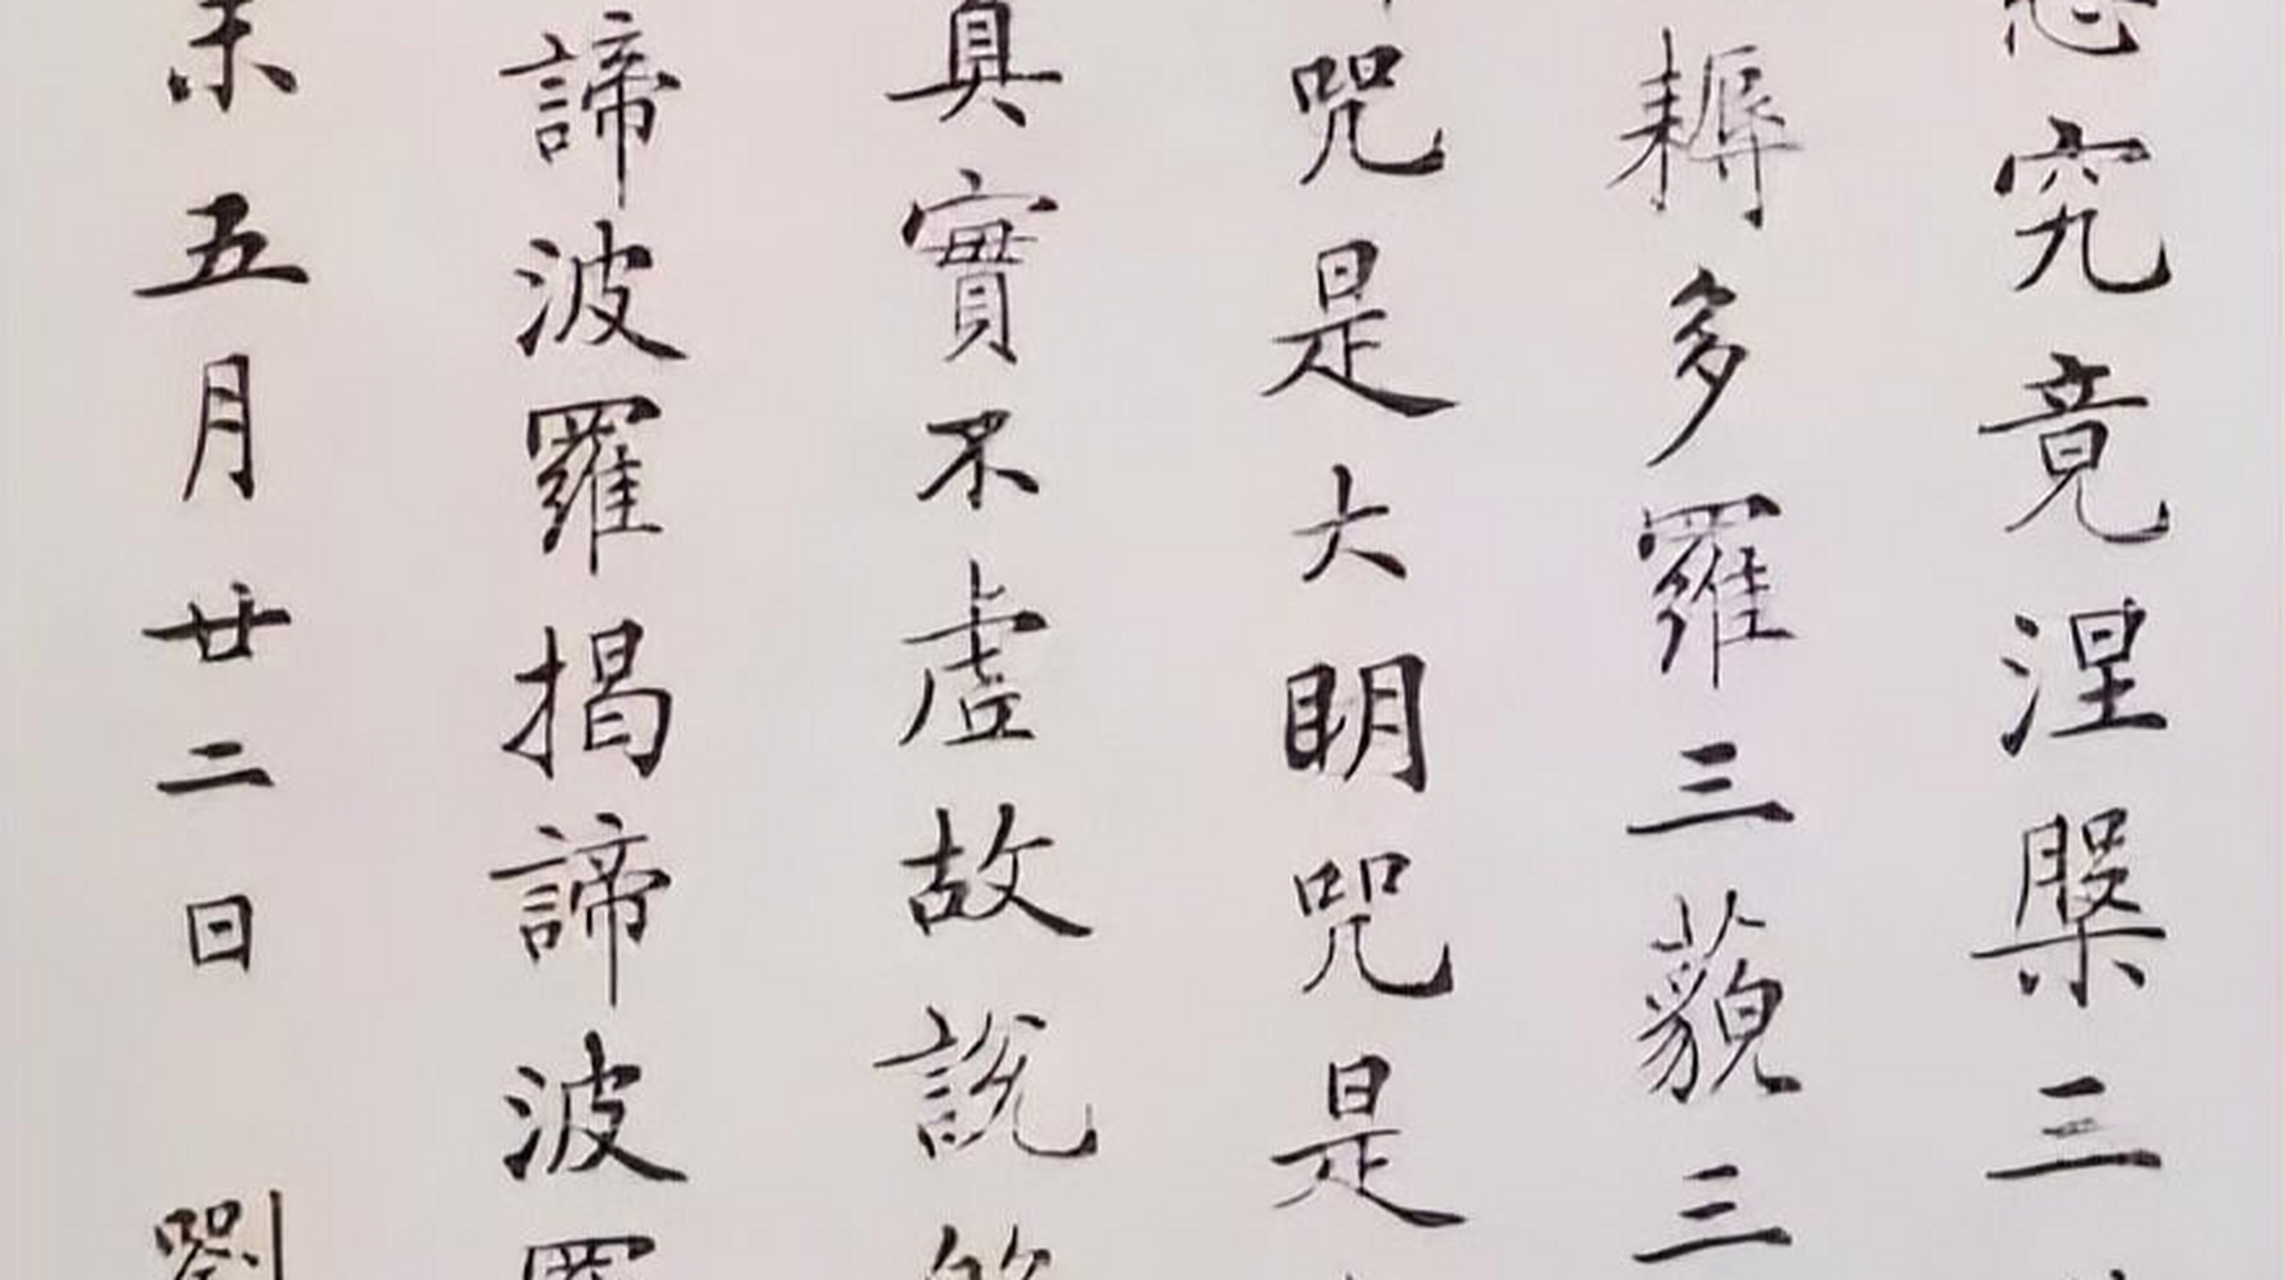 究竟涅槃三
耨多羅三藐三
咒是大明咒是
真實不虛故說
諦波羅揭諦波羅
未五月廿二日 劉